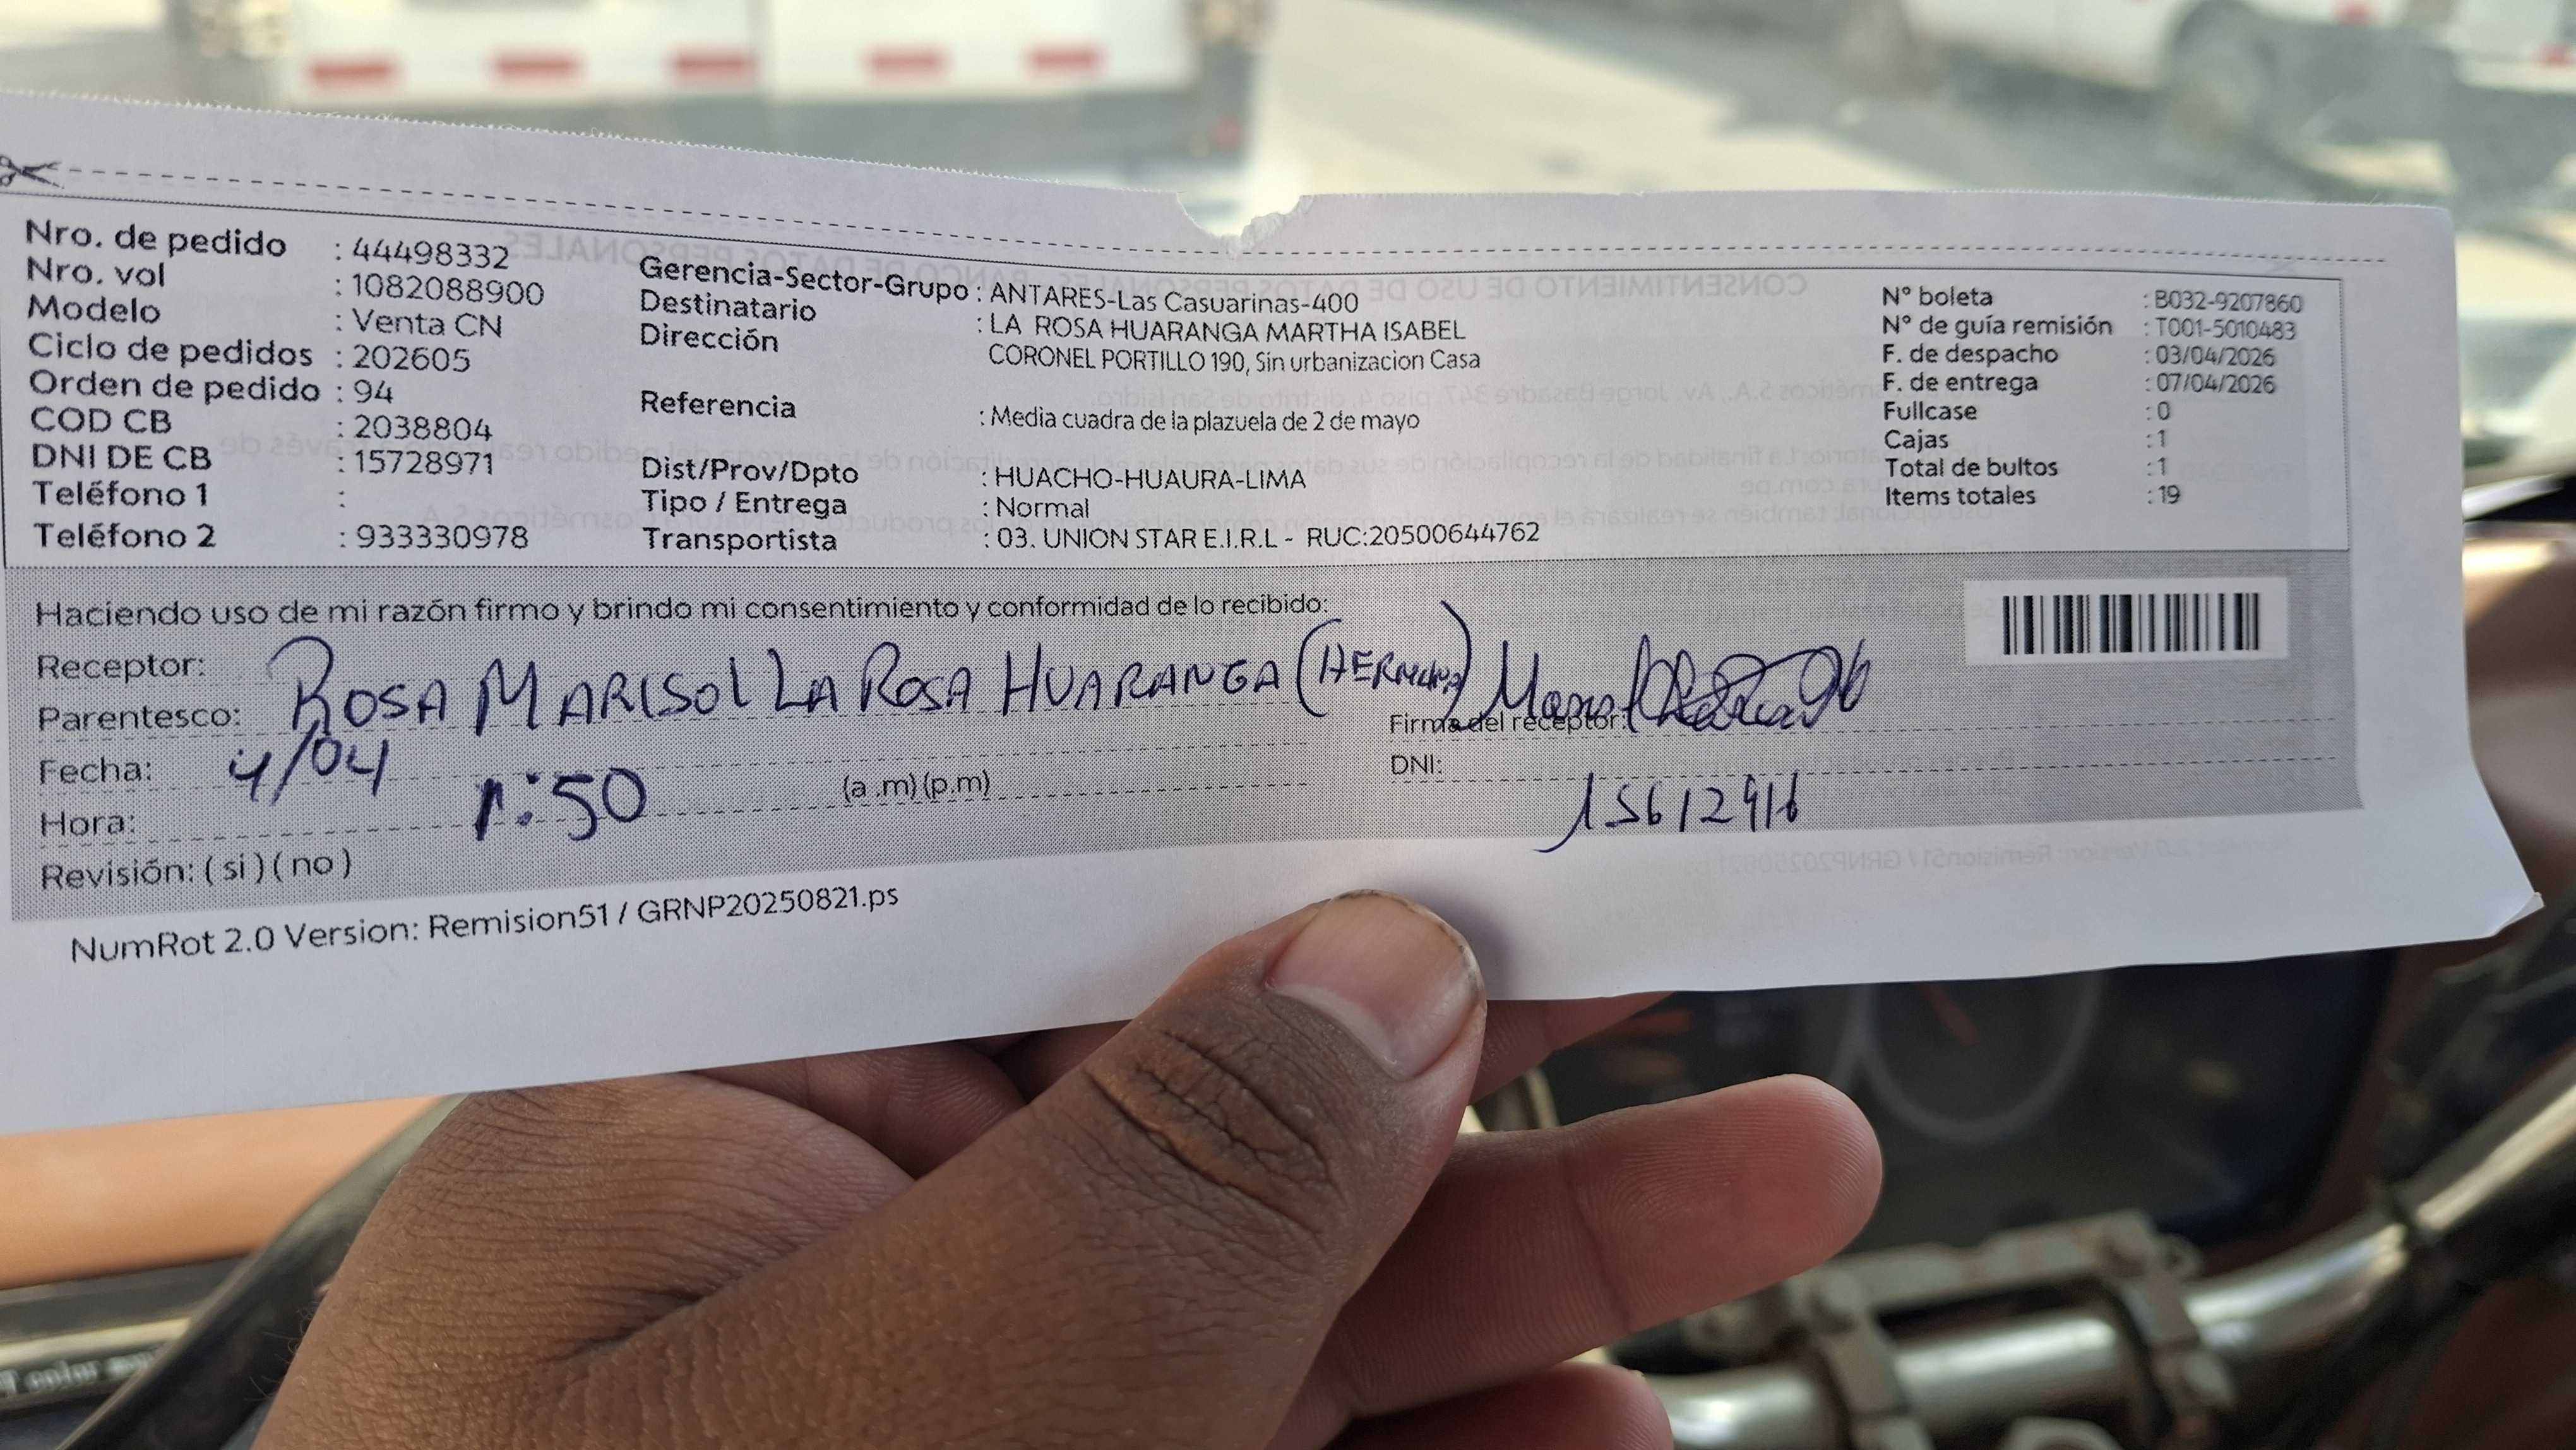 Nro. de pedido : 44498332
Nro. vol : 1082088900
Modelo : Venta CN
Ciclo de pedidos : 202605
Orden de pedido : 94
COD CB : 2038804
DNI DE CB : 15728971
Teléfono 1 :
Teléfono 2 : 933330978
Gerencia-Sector-Grupo : ANTARES-Las Casuarinas-400
Destinatario : LA ROSA HUARANGA MARTHA ISABEL
Dirección CORONEL PORTILLO 190, Sin urbanizacion Casa
Referencia : Media cuadra de la plazuela de 2 de mayo
Dist/Prov/Dpto : HUACHO-HUAURA-LIMA
Tipo / Entrega : Normal
Transportista : 03. UNION STAR E.I.R.L - RUC:20500644762
N° boleta : B032-9207860
N° de guía remisión : T001-5010483
F. de despacho : 03/04/2026
F. de entrega : 07/04/2026
Fullcase : 0
Cajas : 1
Total de bultos : 1
Items totales : 19
Haciendo uso de mi razón firmo y brindo mi consentimiento y conformidad de lo recibido:
Receptor:
ROSA MARISOL LA ROSA HUARANGA (HERMANA)
Parentesco:
Firma del receptor:
Fecha: 4/04
DNI: 15612916
Hora: 1:50 (a .m) (p.m)
Revisión: ( si ) ( no )
NumRot 2.0 Version: Remision51 / GRNP20250821.ps